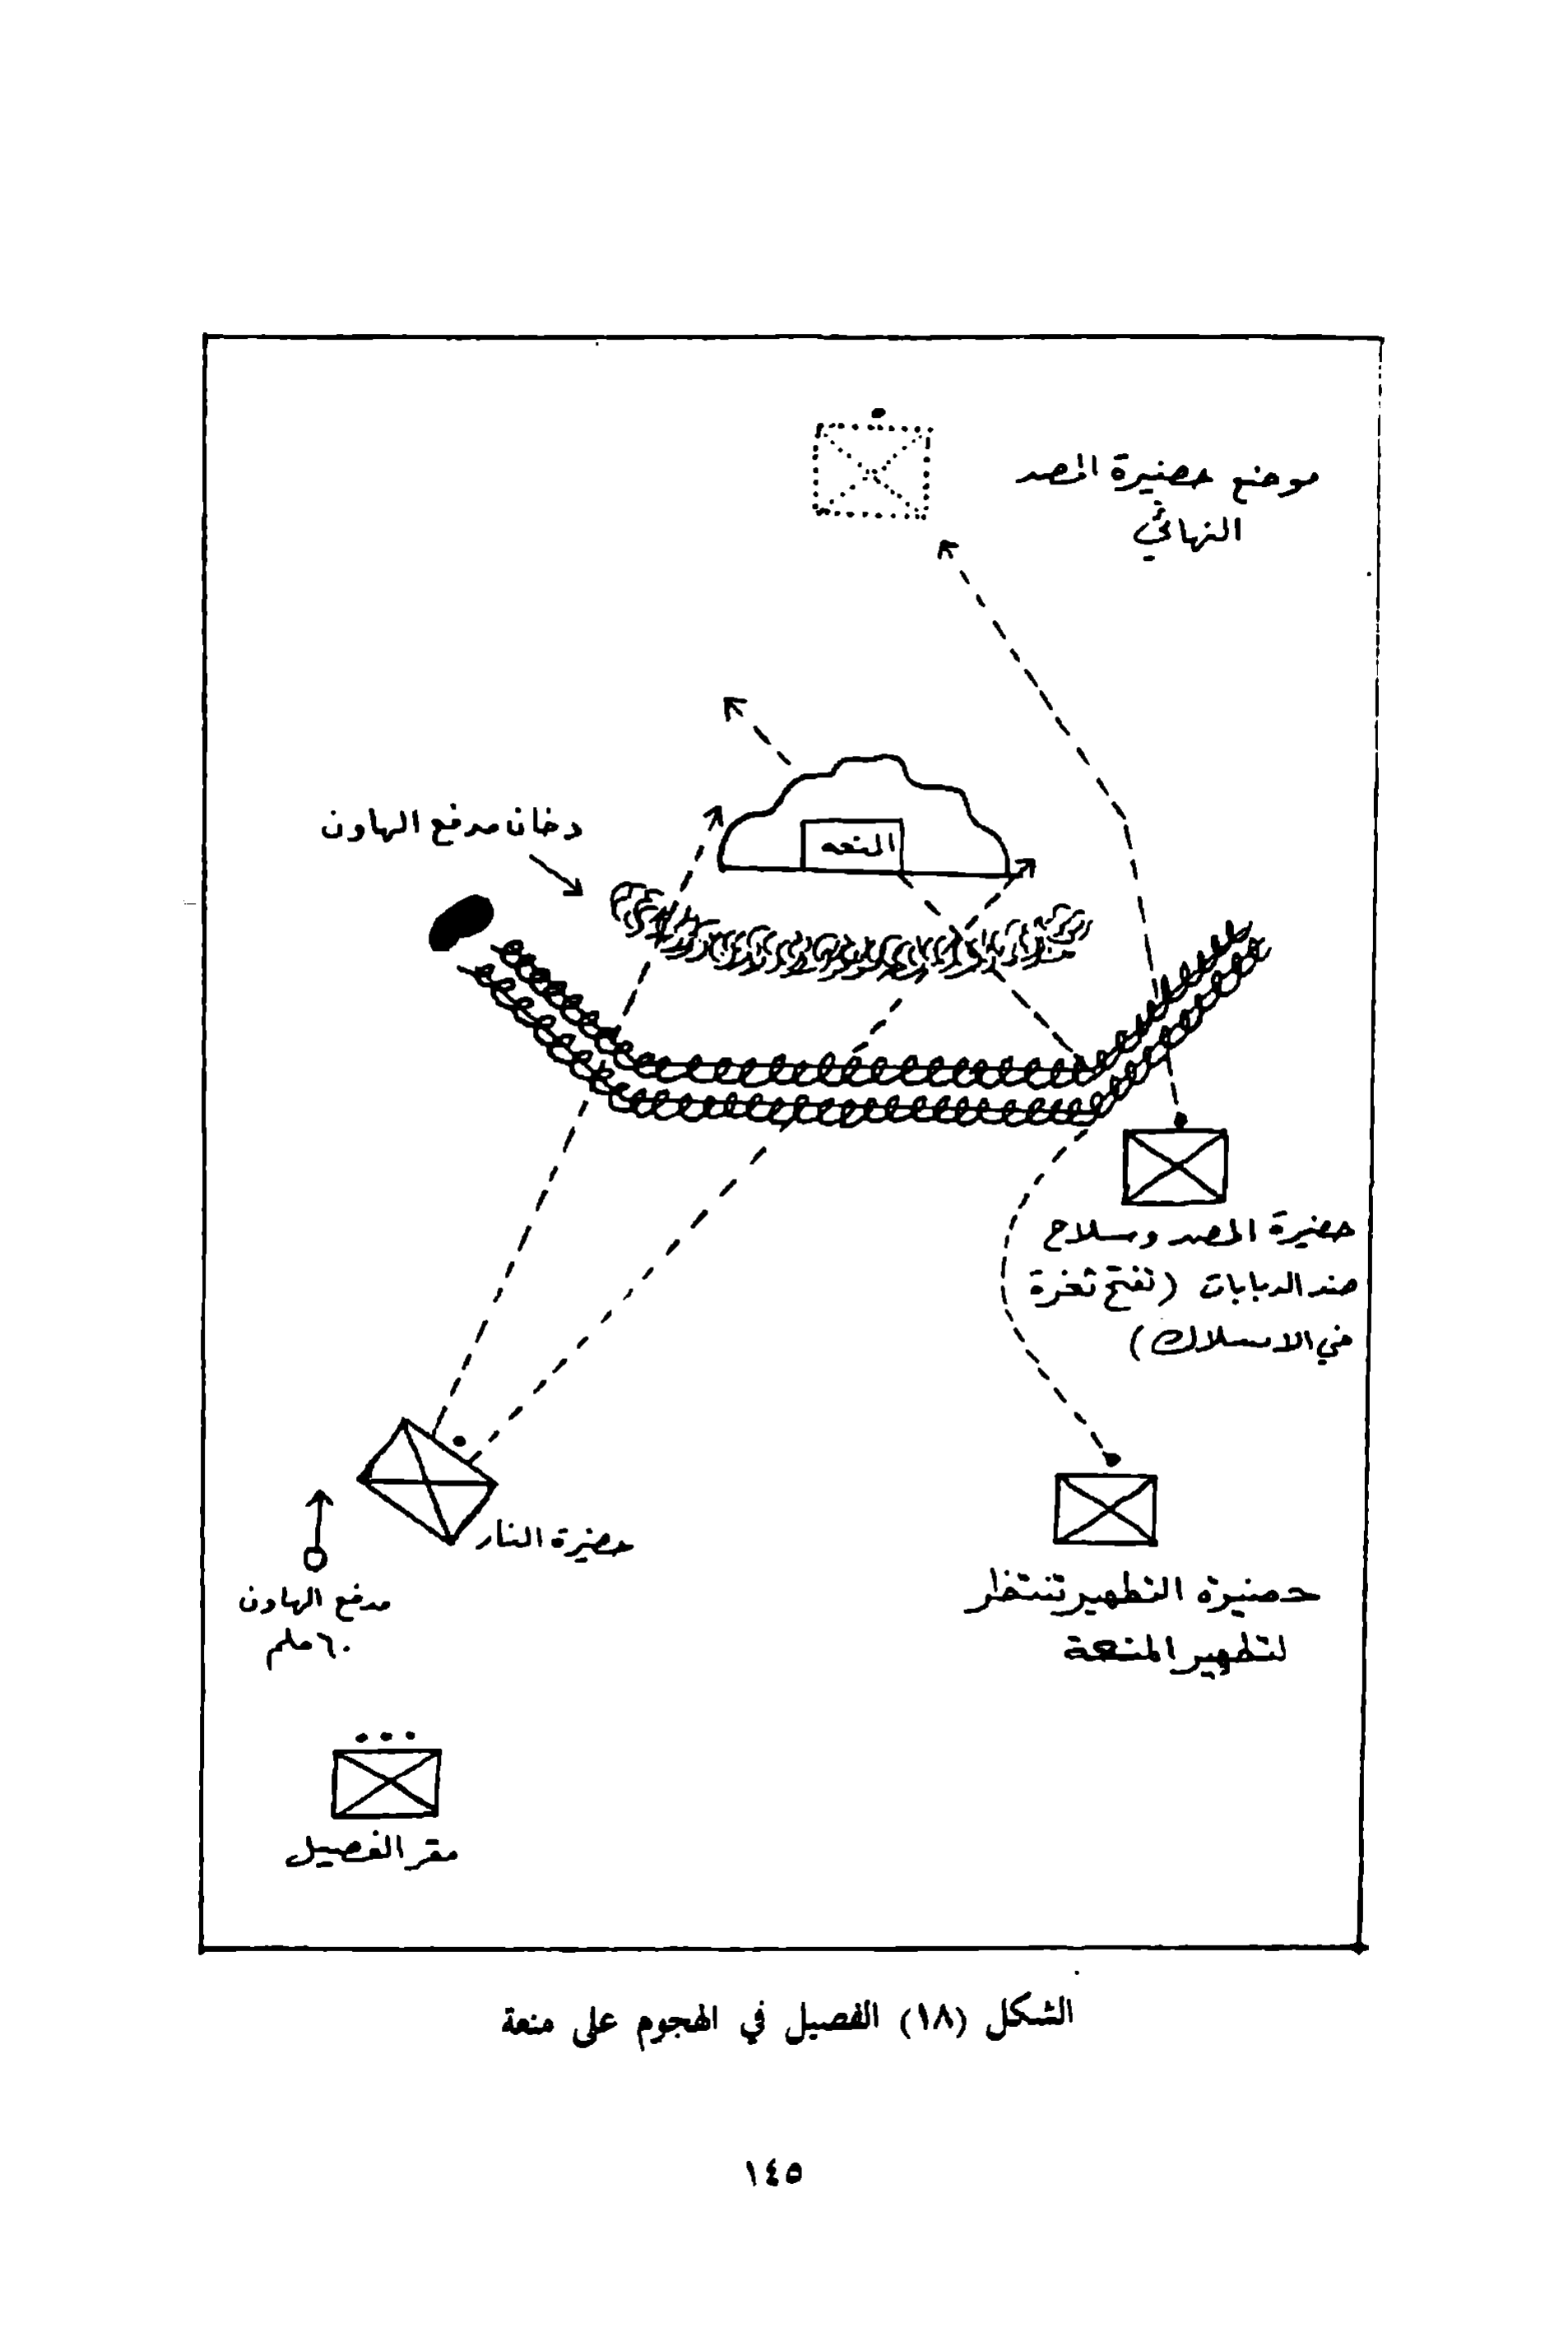 موضع حضيرة الصد
النهائي
دخان مدفع الهاون
المنعه
حضيرة الصد وسلاح
ضد الدبابات (تفتح ثغرة
في الاسلاك)
حضيرة النار
مدفع الهاون
٦٠ ملم
حضيرة التطهير تنتظر
لتطهير المنعة
مقر الفصيل
الشكل (١٨) الفصيل في الهجوم على منعة
١٤٥